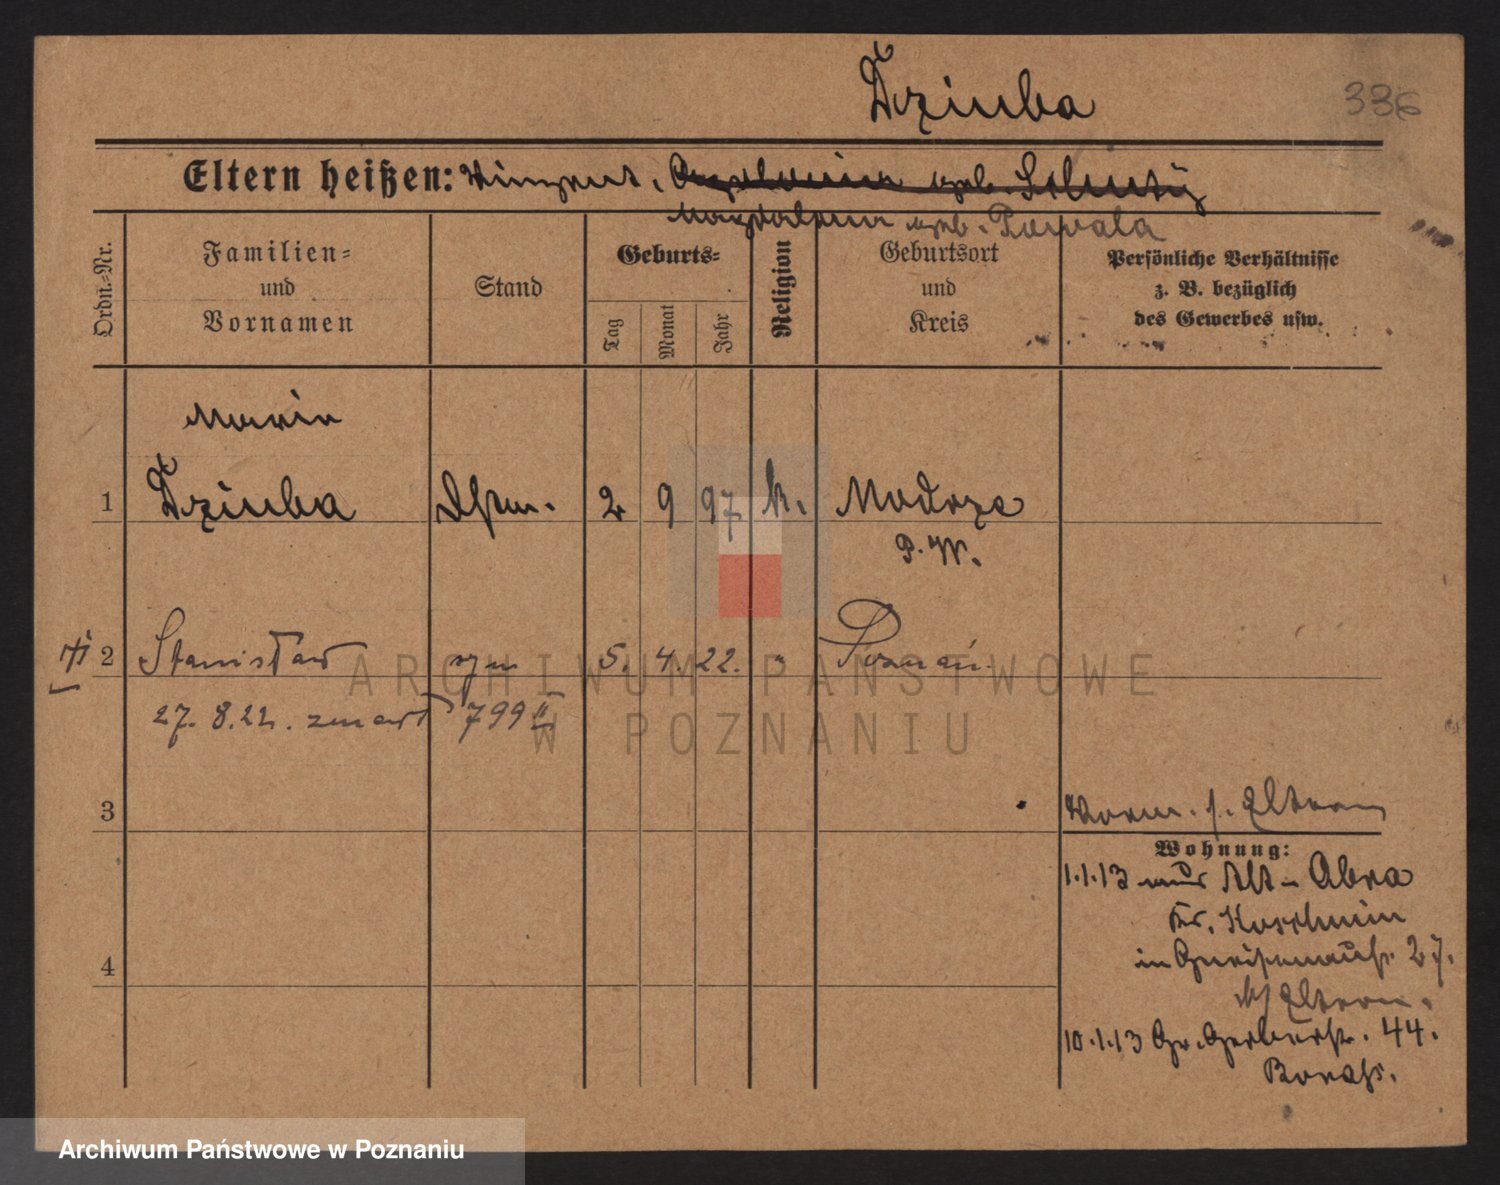 Dziuba
336
Eltern heißen: Vinzent,
Magdalena geb. Powala
Ordn.-Nr.
Familien-
und
Vornamen
Stand
Geburts-
Tag
Monat
Jahr
Religion
Geburtsort
und
Kreis
Persönliche Verhältnisse
z. B. bezüglich
des Gewerbes usw.
Maria
1 Dziuba Dstm. 2 9 97 k. Modrze
P. W.
2 Stanisław syn 5. 4. 22. " Poznań.
27. 8. 22. zmarł 799 II
3
Vorm. s. Eltern
Wohnung:
1.1.13 aus Alt- Obra
Kr. Koschmin
4
in Gneisenaustr. 27.
b/ Eltern.
10.1.13 Gr. Gerberstr. 44.
ARCHIWUM PAŃSTWOWE
W POZNANIU
Archiwum Państwowe w Poznaniu